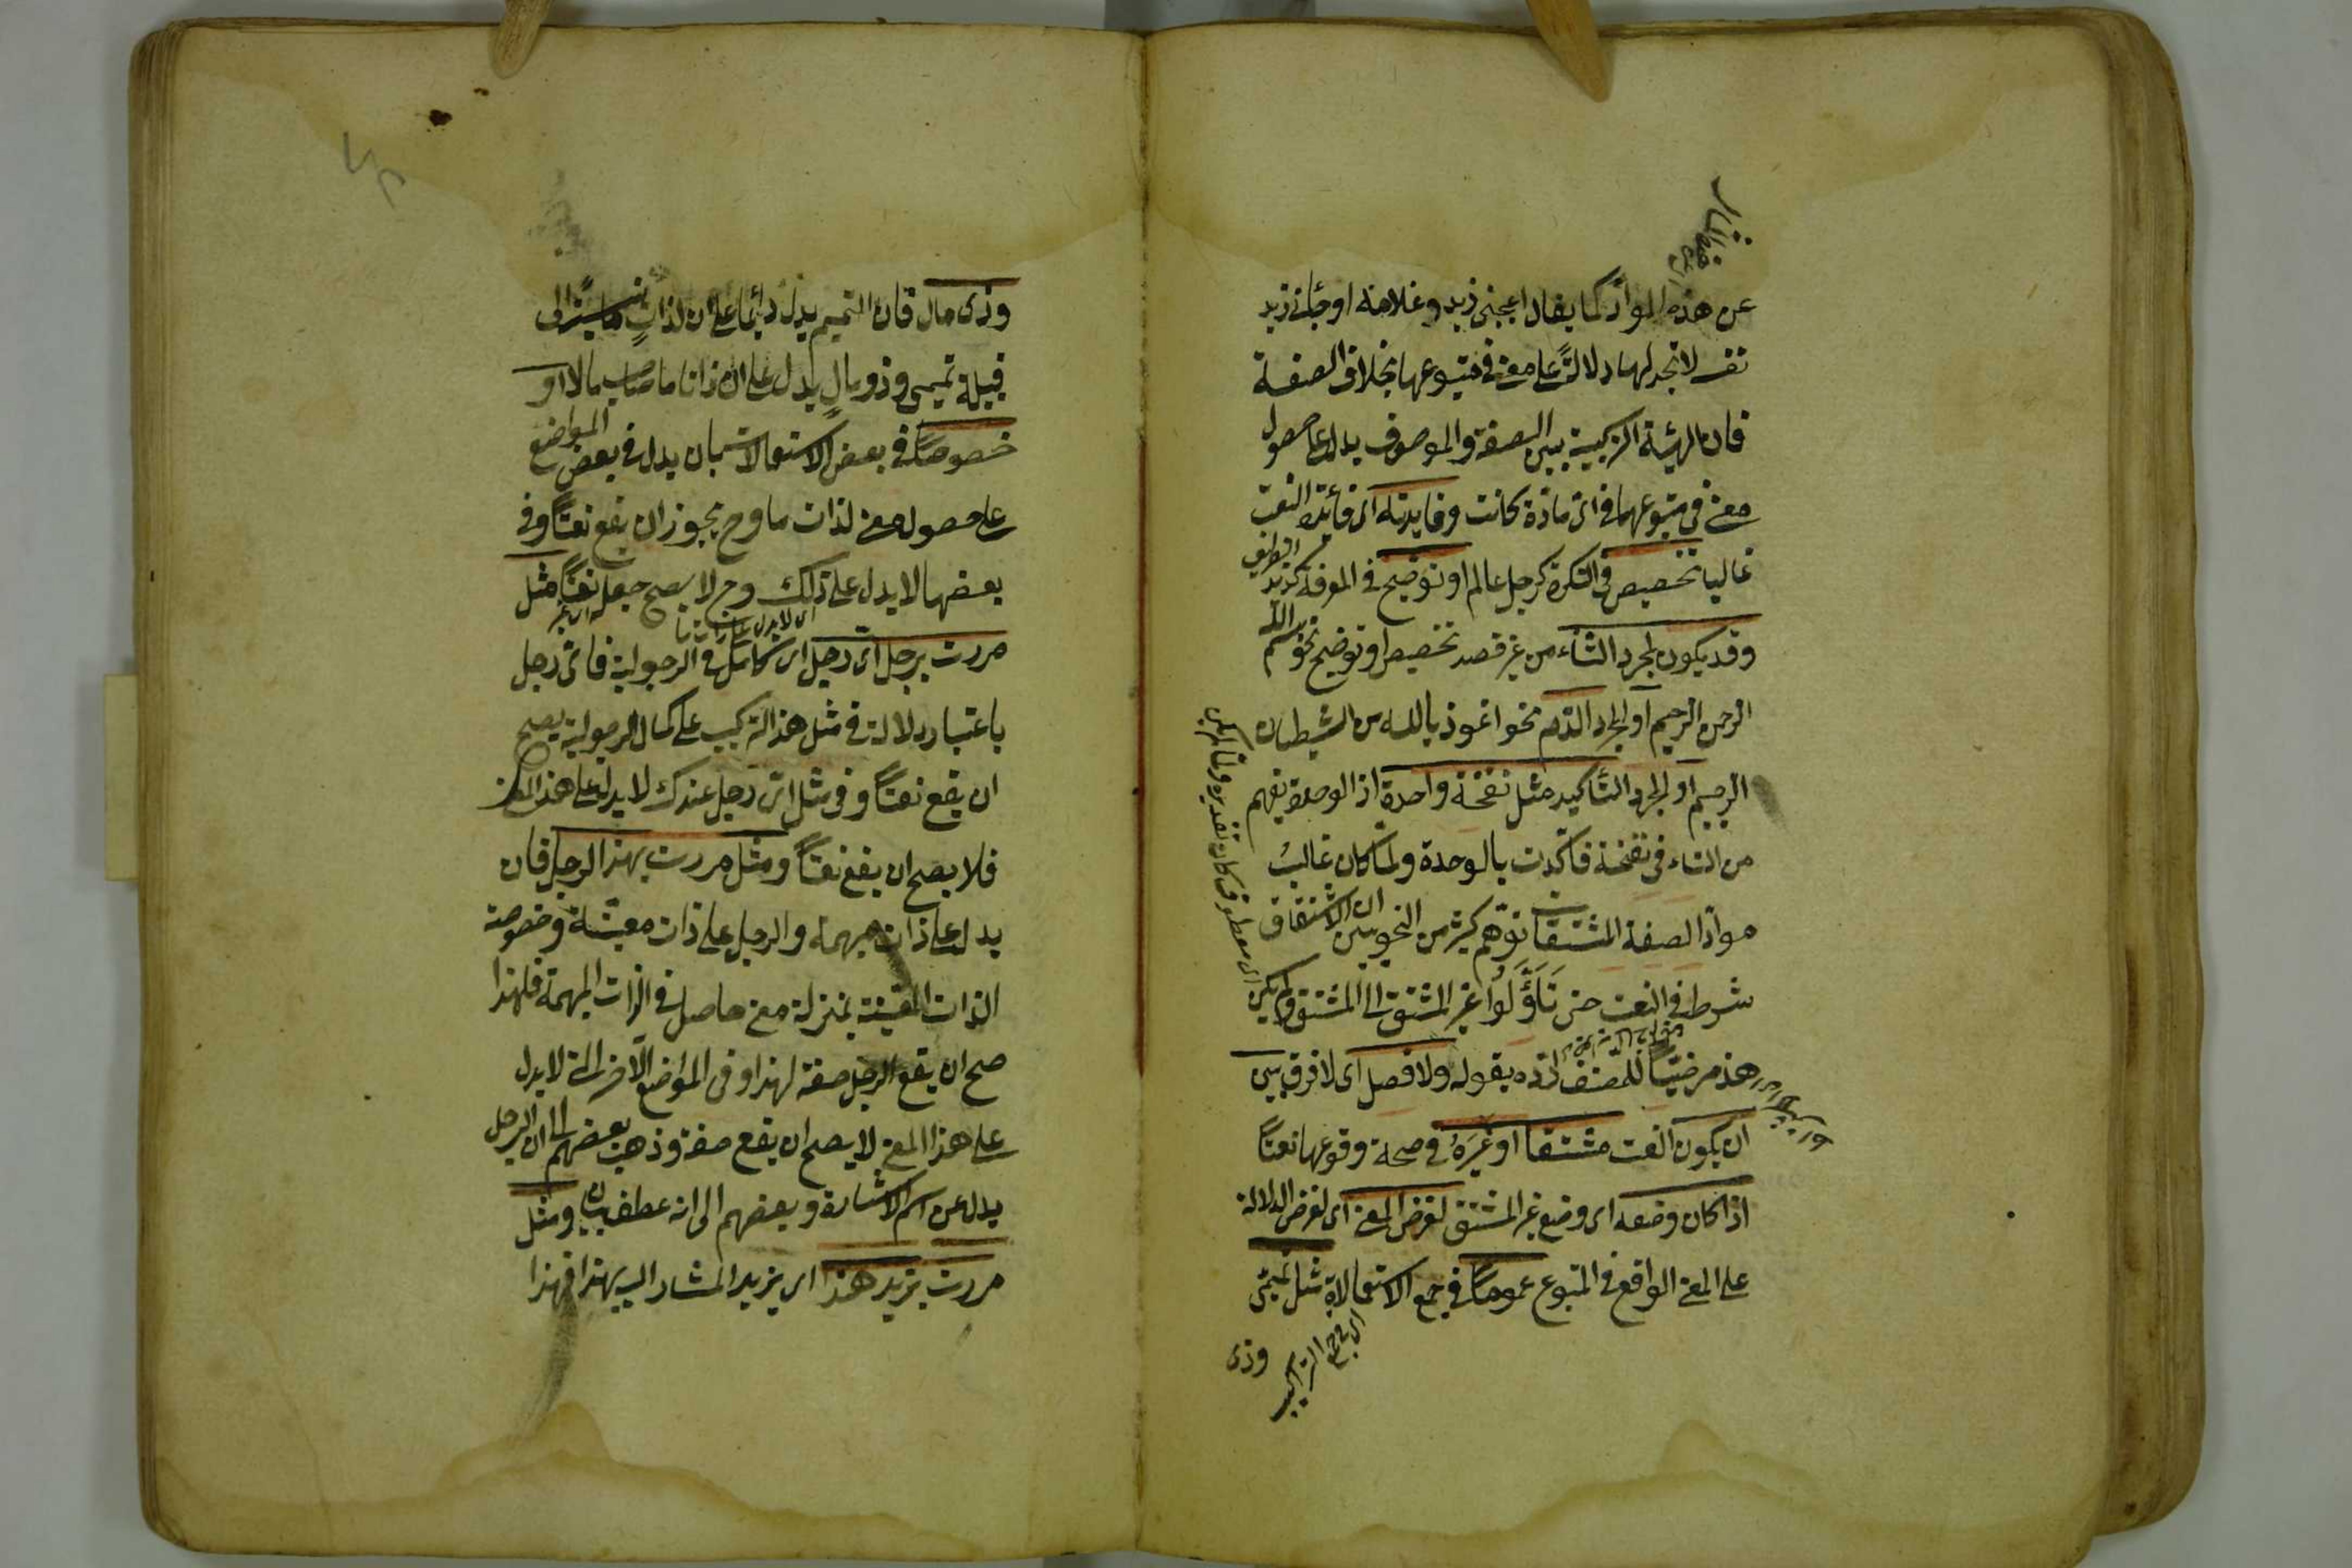 عن هذه المواد كما يقال اعجبنى زيد وغلامه او جائنى زيد
نفسه لا تجد لها دلالة على معنى فى متبوعها بخلاف الصفة
فان الهيئة التركيبية بين الصفة والموصوف يدل على حصول
معنى فى متبوعها فى اى مادة كانت وفايدته اى فائدة النعت
غالبا تخصيص فى النكرة كرجل عالم او توضيح فى المعرفة كزيد الظريف
وقد يكون لمجرد الثناء من غير قصد تخصيص او توضيح نحو بسم الله
الرحمن الرحيم او لمجرد الذم نحو اعوذ بالله من الشيطان
الرجيم او لمجرد التأكيد مثل نفخة واحدة اذ الوحدة تفهم
من التاء فى نفخة فاكدت بالوحدة ولما كان غالب
مواد الصفة المشتقات توهم كثير من النحويين ان الاشتقاق
شرط فى النعت حتى تأولوا غير المشتق الى المشتق ولم يكن
هذا مرضيا للمصنف رده بقوله ولا فصل اى لا فرق بين
ان يكون النعت مشتقا او غيره فى صحة وقوعها نعتا
اذا كان وضعه اى وضع غير المشتق لغرض المعنى اى لغرض الدلالة
على المعنى الواقع فى المتبوع عموما فى جميع الاستعمالات مثل تميمى
اى فى جميع التراكيب
وذى
وذى مال فان التميمى يدل دائما على ان لذات ما نسبة الى
قبيلة تميم وذو مال يدل على ان ذاتا ما صاحب مال او
خصوصا فى بعض الاستعمالات بان يدل فى بعض المواضع
على حصول معنى لذات ما وح يجوز ان يقع نعتا وفى
بعضها لا يدل على ذلك وح لا يصح جعله نعتا مثل
مررت برجل اى رجل اى كامل فى الرجولية فاى رجل
باعتبار دلالته فى مثل هذا التركيب على كمال الرجولية يصح
ان يقع نعتا وفى مثل اى رجل عندك لا يدل على هذا المعنى
فلا يصح ان يقع نعتا ومثل مررت بهذا الرجل فان
يدل على ذات مبهمة والرجل على ذات معينة وخصوصة
الذات المعينة بمنزلة معنى حاصل فى الذات المبهمة فلهذا
صح ان يقع الرجل صفة لهذا وفى المواضع الآخر التى لا يدل
على هذا المعنى لا يصح ان يقع صفة وذهب بعضهم الى ان الرجل
بدل عن اسم الاشارة وبعضهم الى انه عطف بيان ومثل
مررت بزيد هذا اى بزيد المشار اليه بهذا فهذا